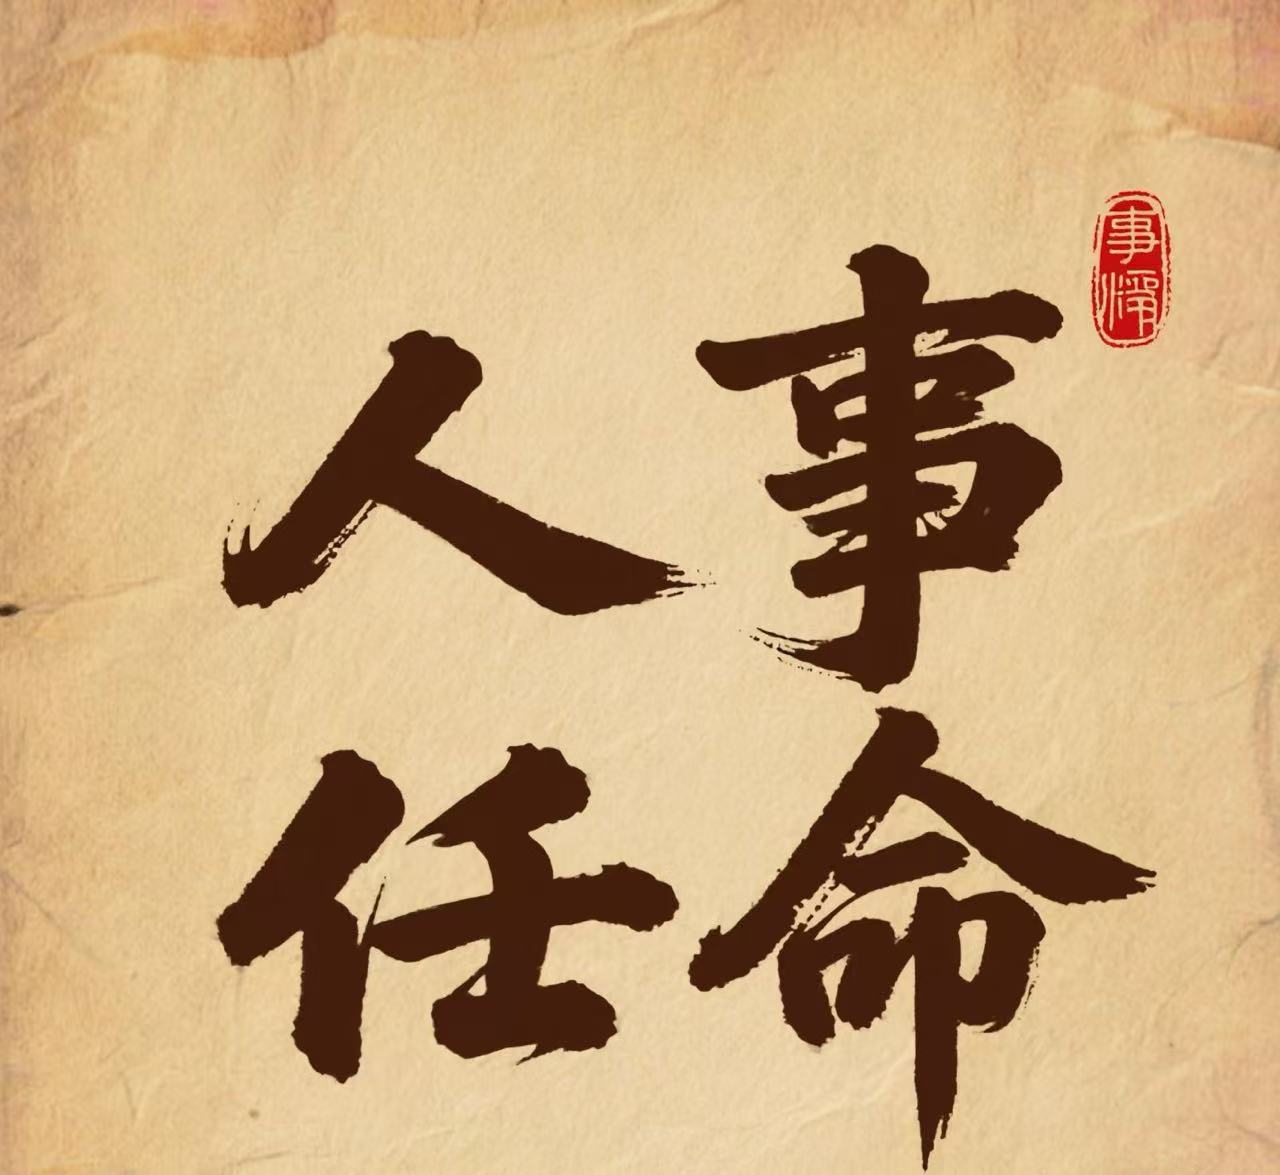 人事
任命
事